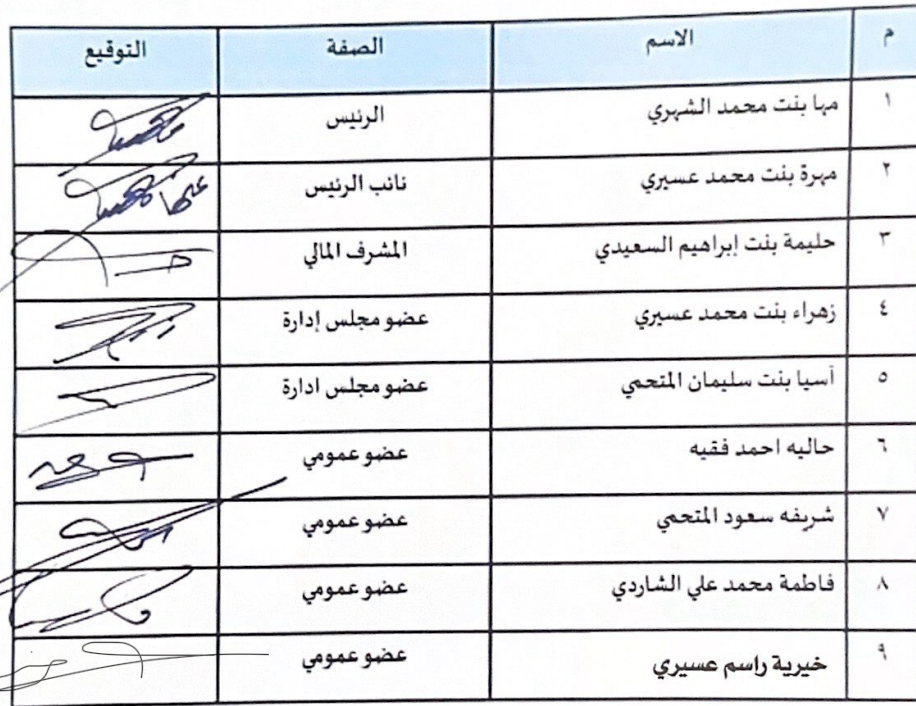 م الاسم الصفة التوقيع
١ مها بنت محمد الشهري الرئيس
٢ مهرة بنت محمد عسيري نائب الرئيس
٣ حليمة بنت إبراهيم السعيدي المشرف المالي
٤ زهراء بنت محمد عسيري عضو مجلس إدارة
٥ آسيا بنت سليمان المتحمي عضو مجلس ادارة
٦ حاليه احمد فقيه عضو عمومي
٧ شريفه سعود المتحمي عضو عمومي
٨ فاطمة محمد علي الشاردي عضو عمومي
٩ خيرية راسم عسيري عضو عمومي